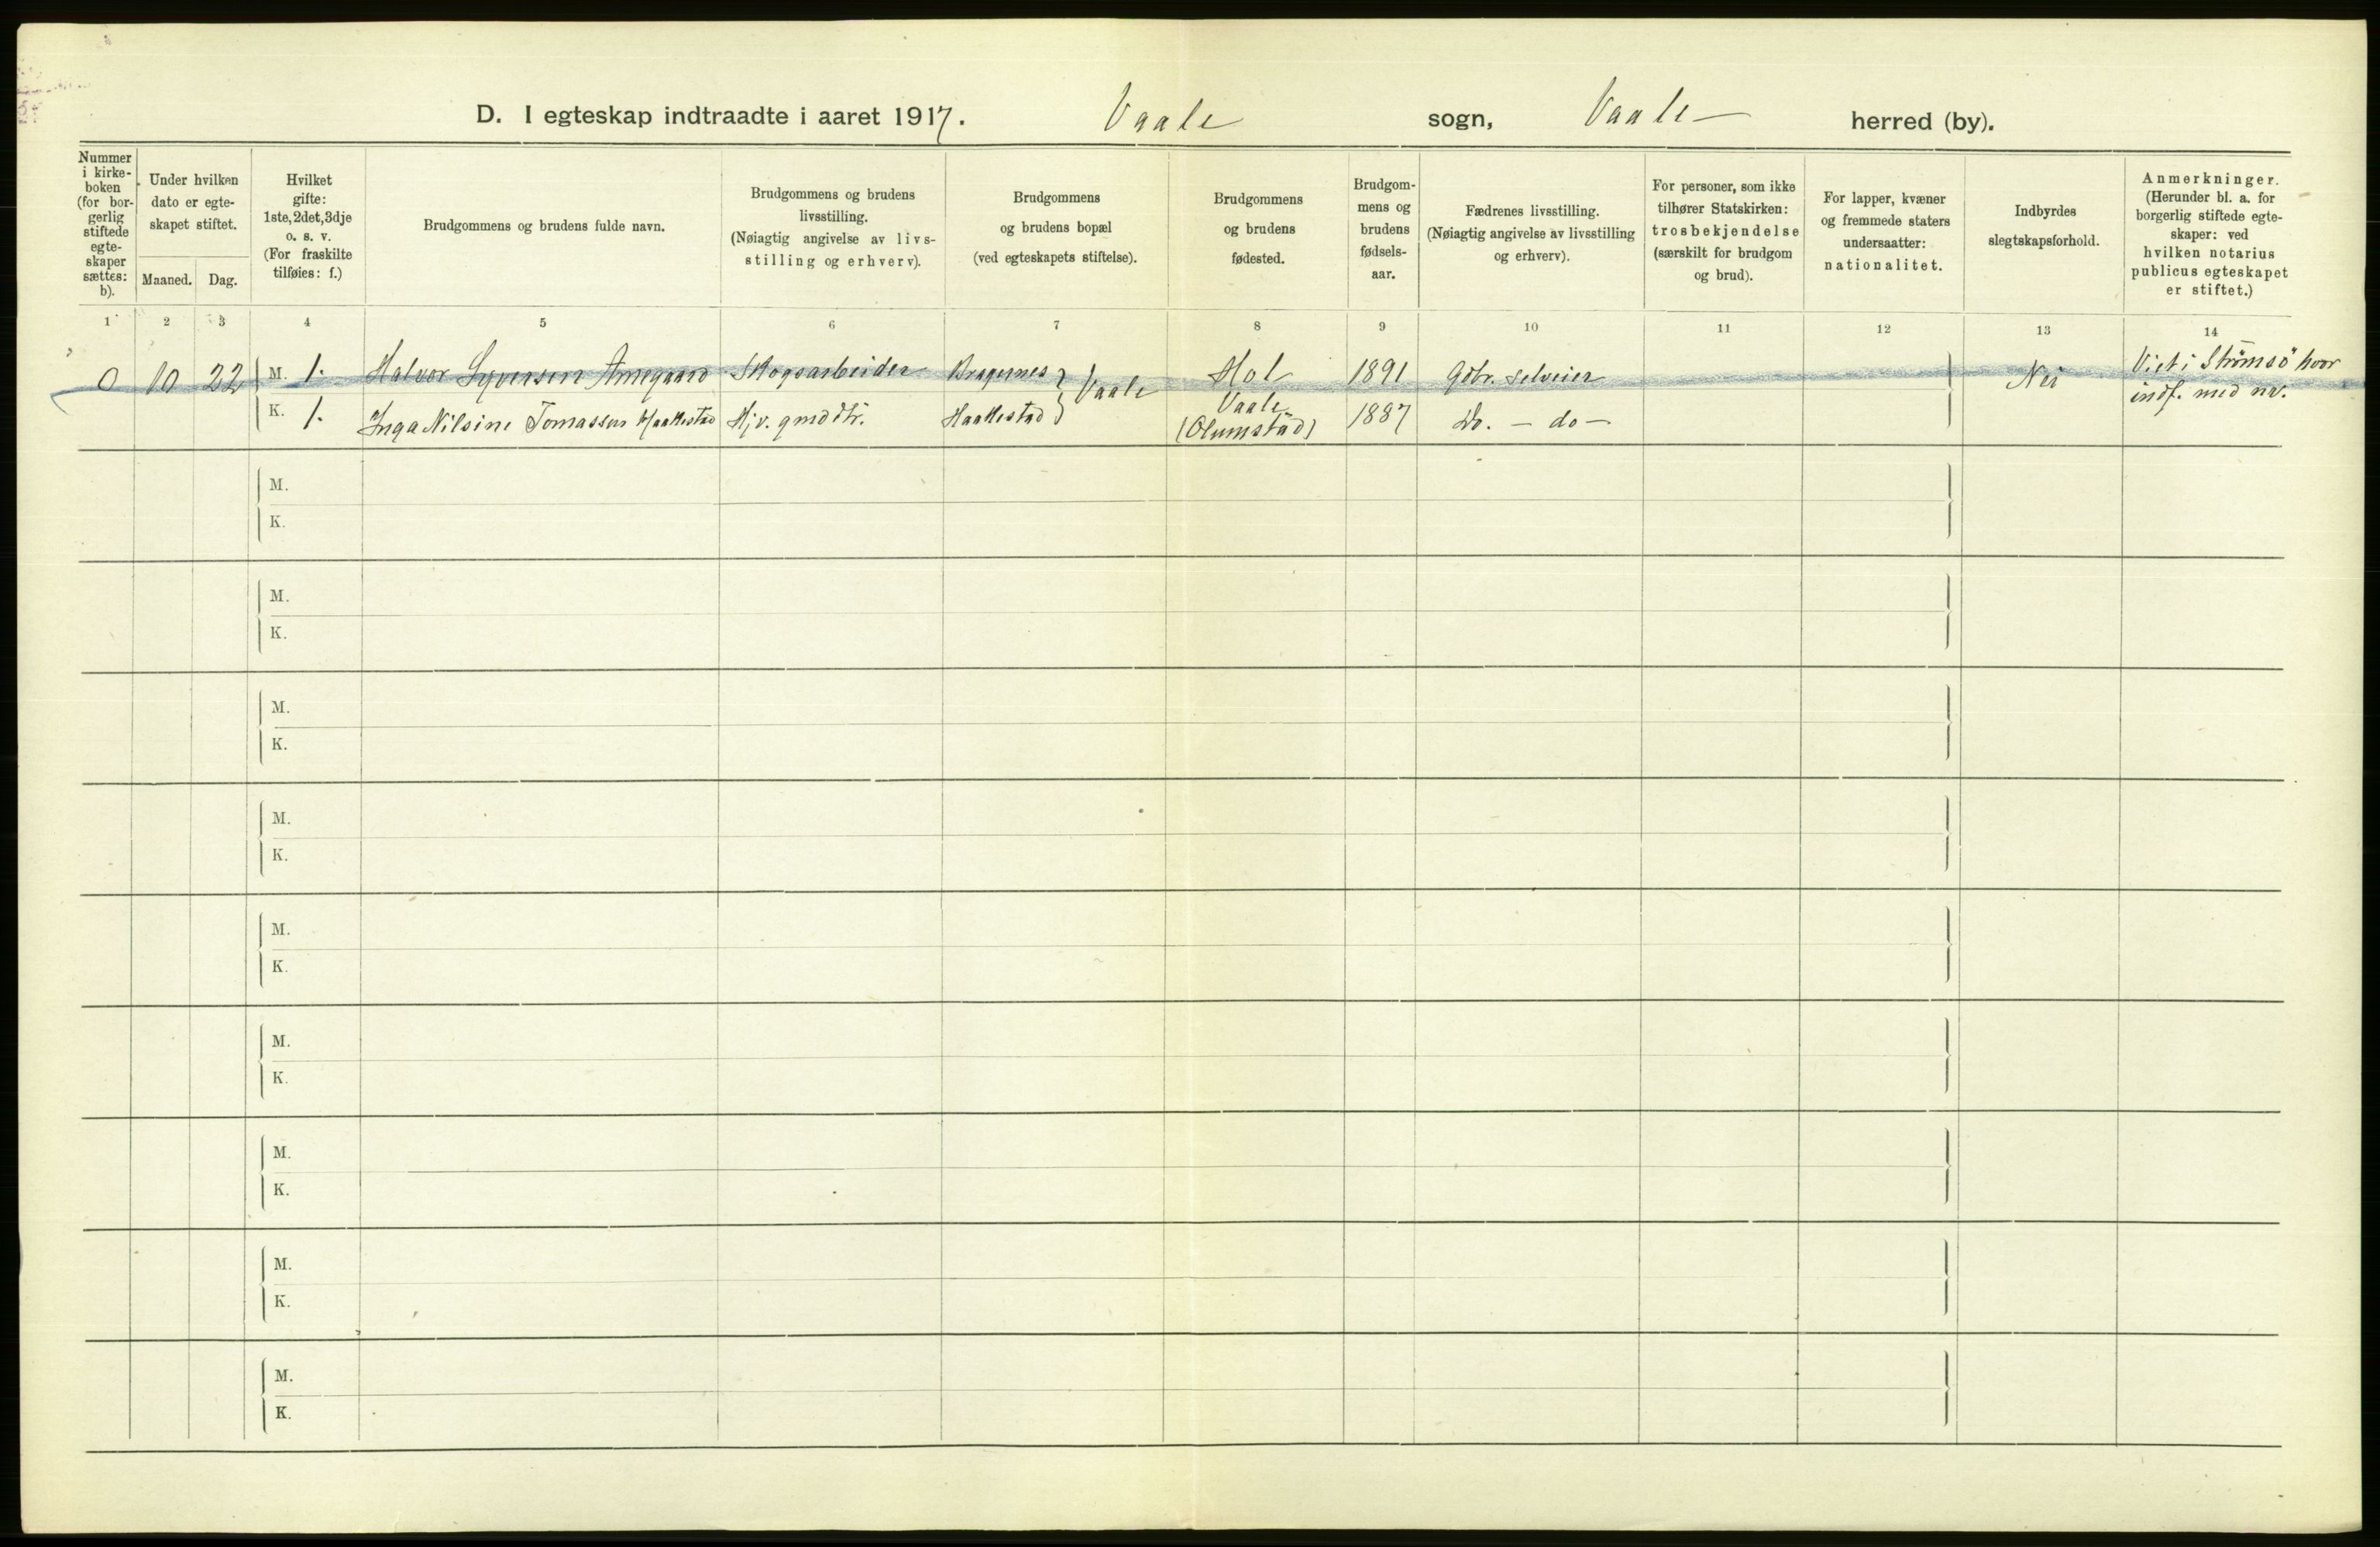 D. I egteskap indtraadte i aaret 1917. Vaale sogn, Vaale herred (by).
Nummer
i kirke-
boken
(for bor-
gerlig
stiftede
egte-
skaper
sættes:
b).
Under hvilken
dato er egte-
skapet stiftet.
Maaned.
Dag.
Hvilket
gifte:
1ste, 2det, 3dje
o. s. v.
(For fraskilte
tilføies: f.)
Brudgommens og brudens fulde navn.
Brudgommens og brudens
livsstilling.
(Nøiagtig angivelse av livs-
stilling og erhverv).
Brudgommens
og brudens bopæl
(ved egteskapets stiftelse).
Brudgommens
og brudens
fødested.
Brudgom-
mens og
brudens
fødsels-
aar.
Fædrenes livsstilling.
(Nøiagtig angivelse av livsstilling
og erhverv).
For personer, som ikke
tilhører Statskirken:
trosbekjendelse
(særskilt for brudgom
og brud).
For lapper, kvæner
og fremmede staters
undersaatter:
nationalitet.
Indbyrdes
slegtskapsforhold.
Anmerkninger.
(Herunder bl. a. for
borgerlig stiftede egte-
skaper: ved
hvilken notarius
publicus egteskapet
er stiftet.)
1 2 3 4 5 6 7 8 9 10 11 12 13 14
0 10 22 M. 1. Halvor Syversen Skogsarbeider Bragernes Vaale Hol 1891 Gbr. selveier Nei Viet i Strömsö hvor
indf. med nr.
K. 1. Inga Nilsine Tomassen Haakestad Hjv. gmddtr. Haakestad Vaale
(Olumstad) 1887 Do. - do -
M.
K.
M.
K.
M.
K.
M.
K.
M.
K.
M.
K.
M.
K.
M.
K.
M.
K.